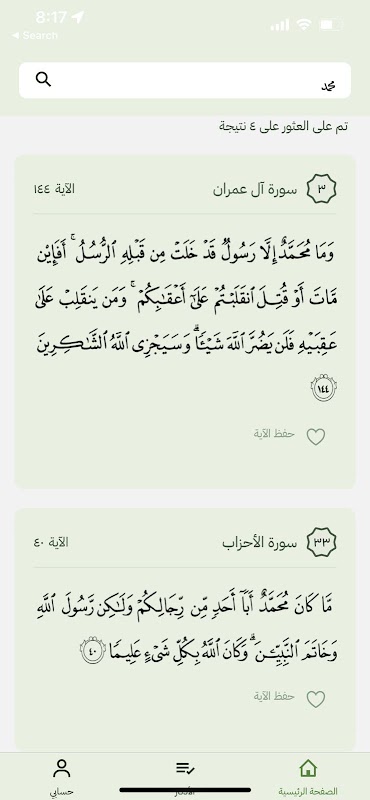 8:17
◀ Search
محمد
تم على العثور على ٤ نتيجة
٣ سورة آل عمران الآية ١٤٤
وَمَا مُحَمَّدٌ إِلَّا رَسُولٌ قَدْ خَلَتْ مِن قَبْلِهِ ٱلرُّسُلُ ۚ أَفَإِي۟ن
مَّاتَ أَوْ قُتِلَ ٱنقَلَبْتُمْ عَلَىٰٓ أَعْقَـٰبِكُمْ ۚ وَمَن يَنقَلِبْ عَلَىٰ
عَقِبَيْهِ فَلَن يَضُرَّ ٱللَّهَ شَيْـًٔا ۗ وَسَيَجْزِى ٱللَّهُ ٱلشَّـٰكِرِينَ
١٤٤
حفظ الآية
٣٣ سورة الأحزاب الآية ٤٠
مَّا كَانَ مُحَمَّدٌ أَبَآ أَحَدٍ مِّن رِّجَالِكُمْ وَلَـٰكِن رَّسُولَ ٱللَّهِ
وَخَاتَمَ ٱلنَّبِيِّـۧنَ ۗ وَكَانَ ٱللَّهُ بِكُلِّ شَىْءٍ عَلِيمًا ٤٠
حفظ الآية
الصفحة الرئيسية الأذكار حسابي